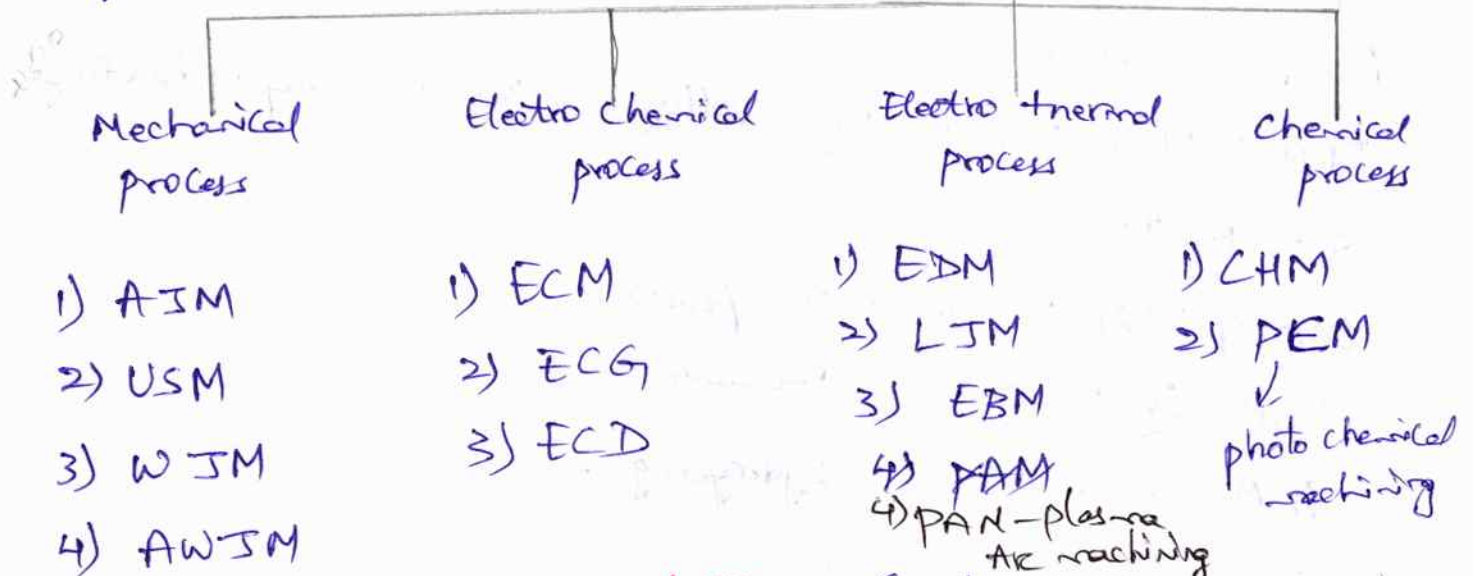 Mechanical process
1) AJM
2) USM
3) WJM
4) AWJM
Electro chemical process
1) ECM
2) ECG
3) ECD
Electro thermal process
1) EDM
2) LJM
3) EBM
4) PAM
4) PAN - plasma
Arc machining
Chemical process
1) CHM
2) PEM
photo chemical
machining